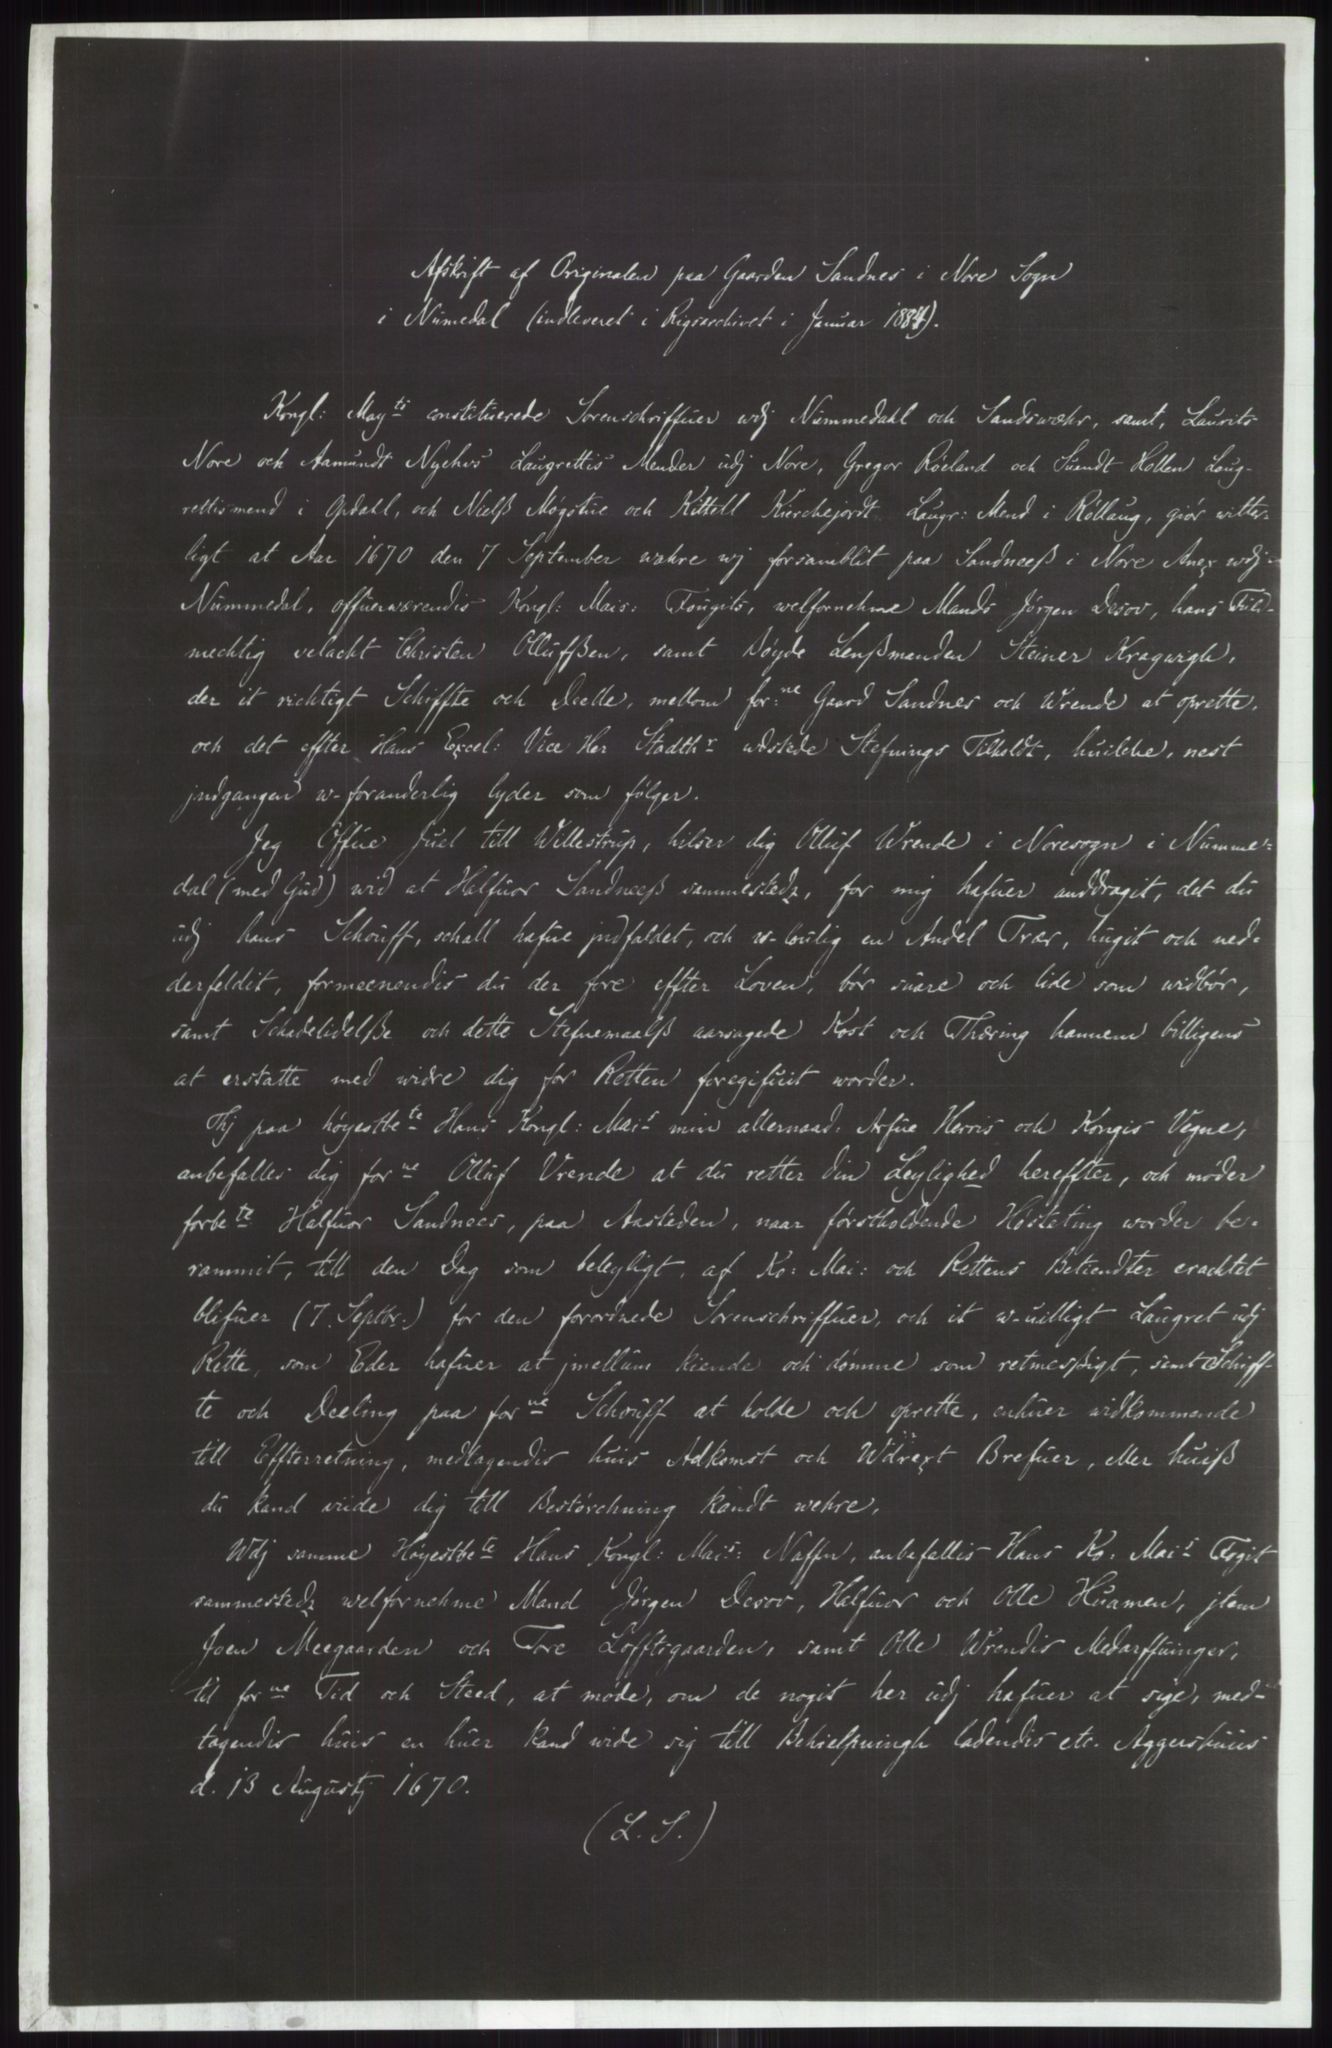 Afskrift af Originalen paa Gaarden Sandnes i Nore Sogn
i Numedal (indleveret i Rigsarchivet i Januar 1884).
Kongl: May<sup>ts</sup> constituerede Sorenschriffuer wdj Nummedahl och Sandswæhr, samt, Laurits
Nore och Aamundt Nyehus Laugrettis Mender udj Nore, Gregor Röeland och Suendt Hollen Laug-
rettismend i Opdahl, och Nielß Mogstue och Kittell Kierchejordt Laugr: Mend i Röllaug, giör witter-
ligt at Aar 1670 den 7 September wahre wj forsamblit paa Sandneeß i Nore Anex wdj
Nummedal, offuerwærendis Kongl: Mais: Fougits, welfornehme Mands Jörgen Desov, hans Fuld-
mechtig velacht Christen Ollufßen, samt Böyde Lenßmanden Steiner Kragwigh,
der it richtigt Schiffte och Deelle, mellom for:<sup>ne</sup> Gaard Sandnes och Wrende at oprette,
och det effter Hans Excel: Vice Her Stadth<sup>r</sup> udstede Stefnings Tilholdt, huilche, nest
jndgangen w-foranderlig lyder som fölger.
Jeg Offue Juel till Willestrup, hilser dig Olluf Wrende i Noresogn i Numme-
dal (med Gud) wid at Halfuor Sandneeß sammestedz, for mig hafuer anddragit, det du
udj hans Schouff, schall hafue jndfaldet, och w-loulig en Andel Trær, hugit och ned-
derfeldit, formeenendis du der fore effter Loven, bör suare och lide som widbör,
samt Schadelidelße och dette Stefnemaalß aarsagede Kost och Thæring hannem billigens
at erstatte med widre dig for Retten foregifuit worder.
Thj paa höyestbe<sup>te</sup> Hans Kongl: Mai<sup>s</sup> min allernaad: Arfue Herris och Kongis Vegne,
anbefalles dig for<sup>ne</sup> Olluf Vrende at du retter din Leylighed hereffter, och möder
forbe<sup>te</sup> Halfuor Sandnees, paa Aasteden, naar förstholdende Hösteting worder be-
rammit, till den Dag som beleyligt, af Ko: Mai: och Rettens Betiendter erachtet
blifuer (7. Septbr.) for den forordnede Sorenschriffuer, och it w-uilligt Laugret udj
Rette, som Eder hafuer at jmellum kiende och dömme som retmeßigt, samt Schiff-
te och Deeling paa for<sup>ne</sup> Schouff at holde och oprette, enhuer widkommende
till Effterretning, medtagendis huis Adkomst och Brefuer, eller huiß
du kand wiide dig till Bestörchning kandt wehre.
Wdj samme Höyestbe<sup>te</sup> Hans Kongl: Mai<sup>s</sup>: Naffn, anbefallis Hans Ko: Mai<sup>s</sup> Fogit
sammestedz welfornehme Mand Jörgen Desov, Halfuor och Olle Huamen, jtem
Joen Meegaarden och Tore Löfftsgaarden, samt Olle Wrendis Medarffuinger,
til for<sup>ne</sup> Tid och Steed, at möde, om de nogit her udj hafuer at sige, med-
tagendis huis en huer kand wide sig till Behielpningh ladendis etc. Aggershuus
d. 13 Augustj 1670.
(L. S.)